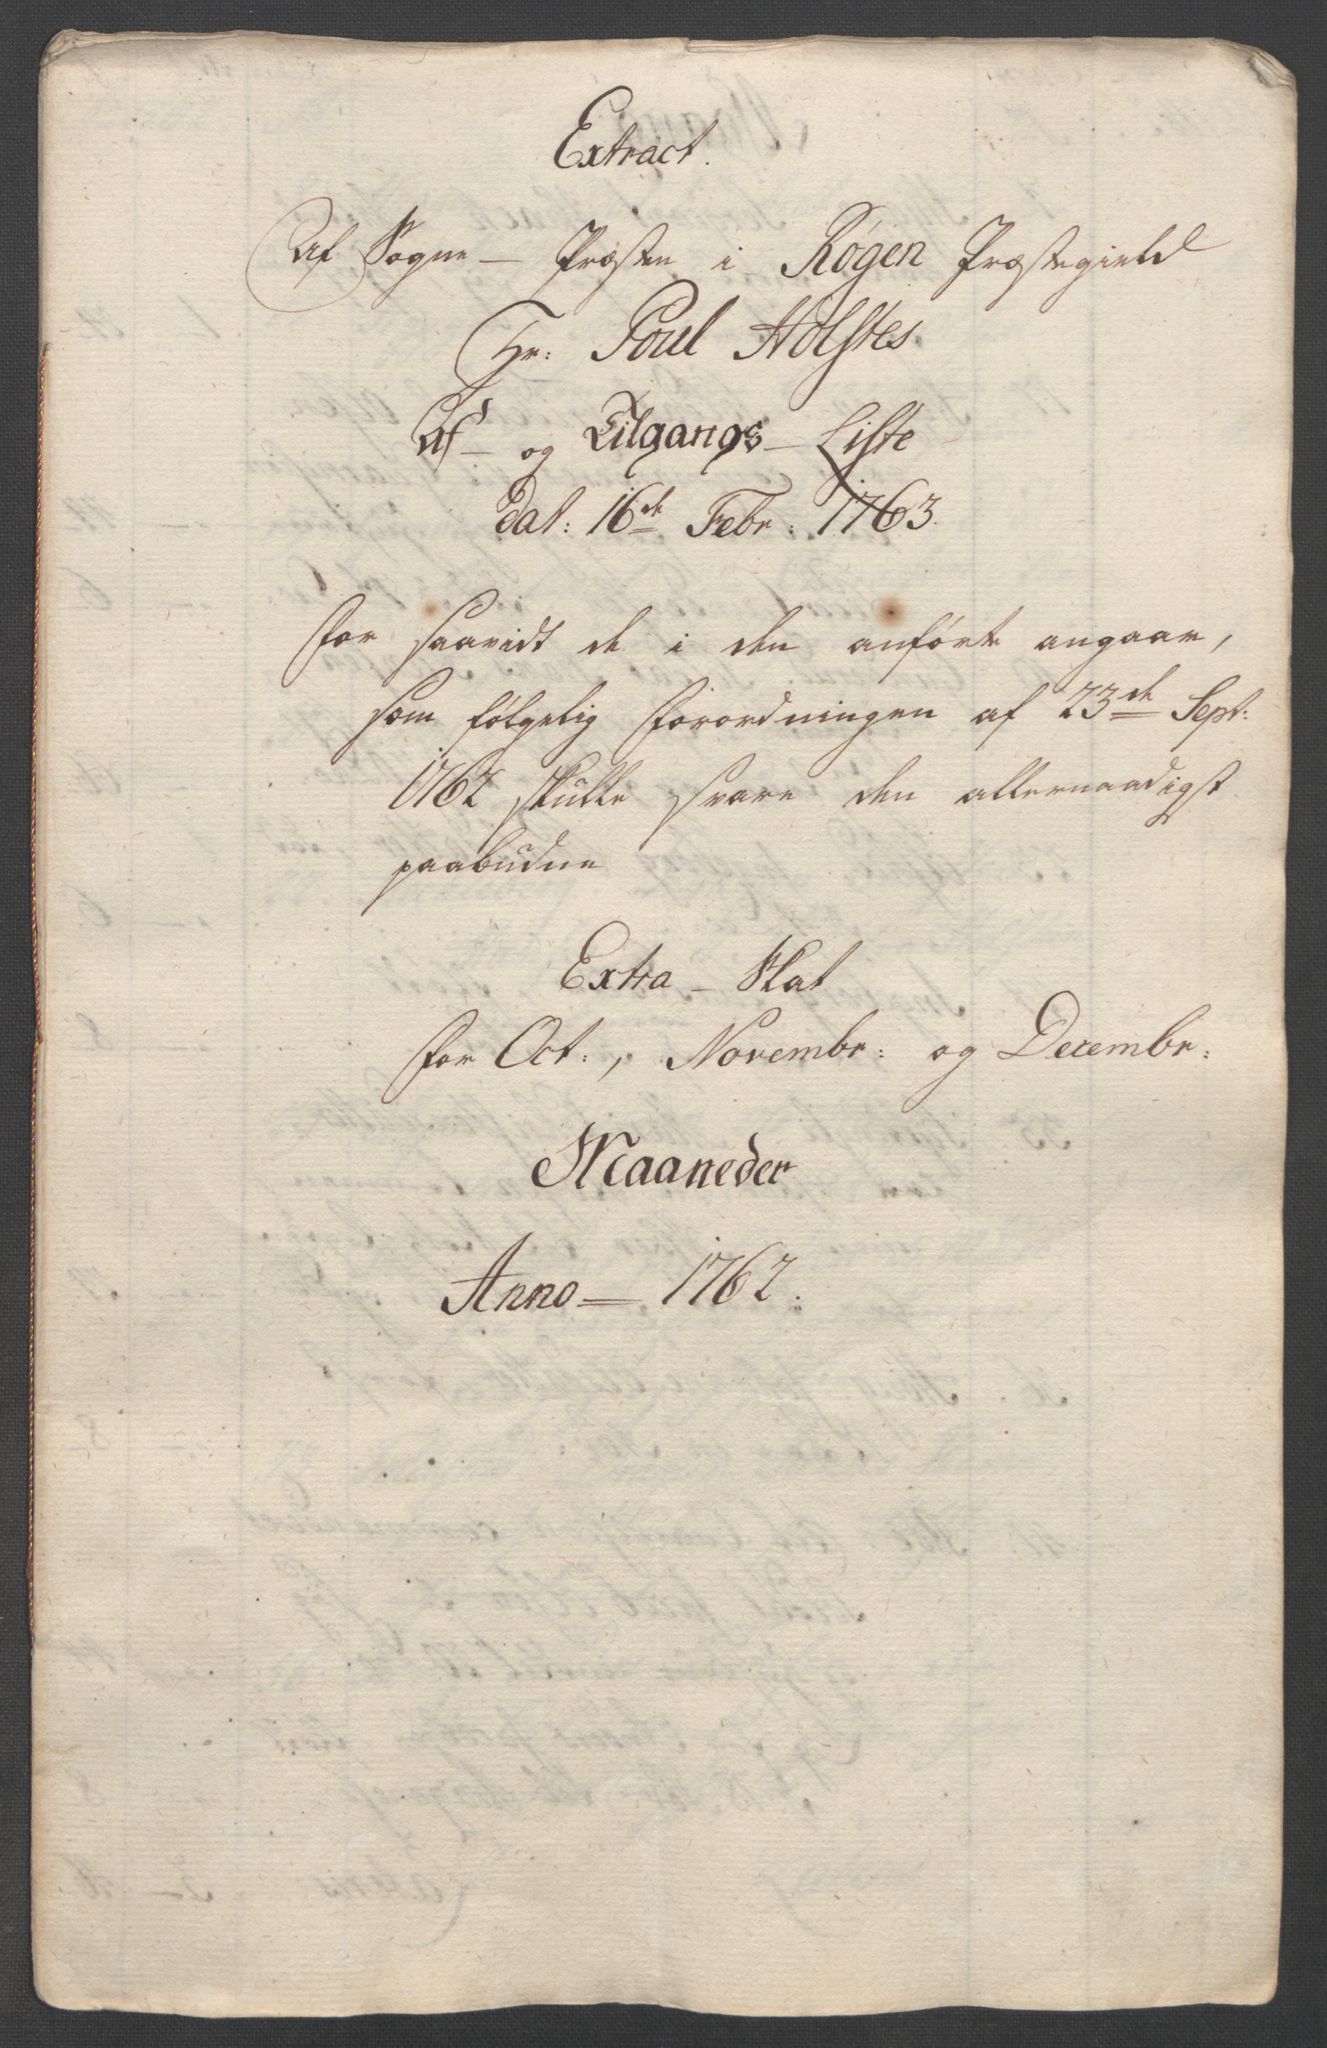 Extract.
Af Sogne - Præsten i Røgen Præstegield
Hr: Poul Holstes
Af - og Tilgangs - Liste
dat: 16de Febr: 1763.
for saavidt de i den anførte angaar,
som følgelig Forordningen af 23de Sept:
1762 skulle svare den allernaadigst
paabudne
Extra - Skat
for Oct:, Novembr: og Decembr:
Maaneder
Anno - 1762.